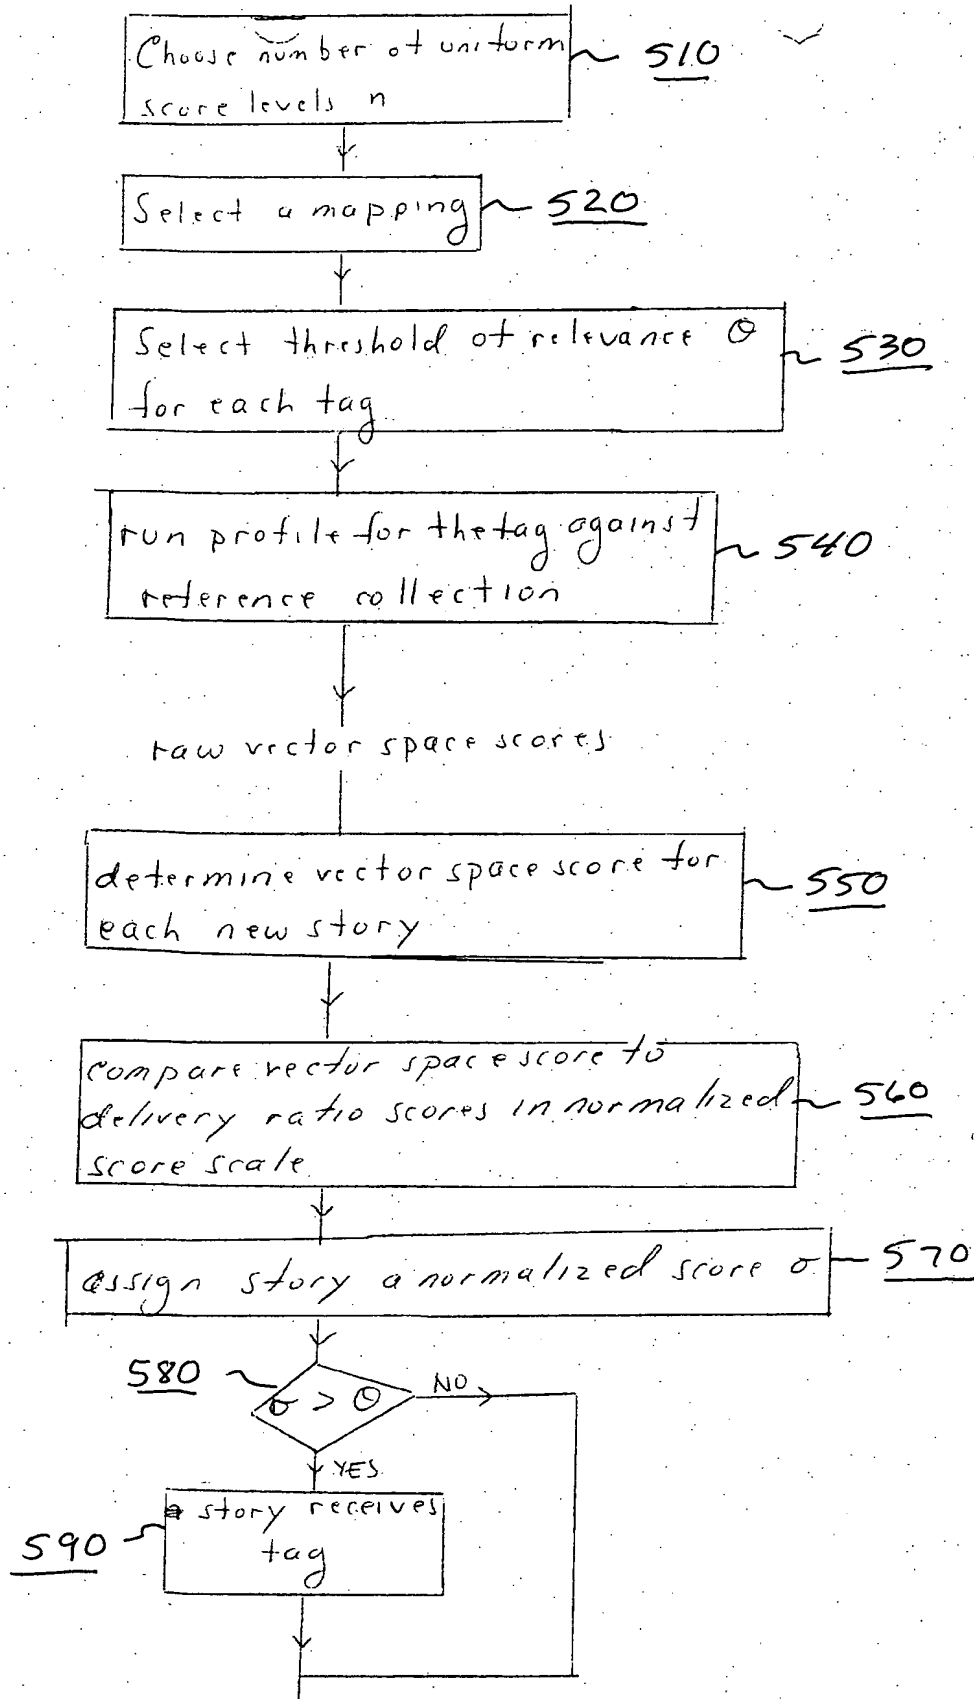 Choose number of uniform
score levels n
510
Select a mapping
520
Select threshold of relevance Θ
for each tag
530
run profile for the tag against
reference collection
540
raw vector space scores
determine vector space score for
each new story
550
compare vector space score to
delivery ratio scores in normalized
score scale
560
assign story a normalized score σ
570
580
σ > Θ
NO
YES
story receives
tag
590